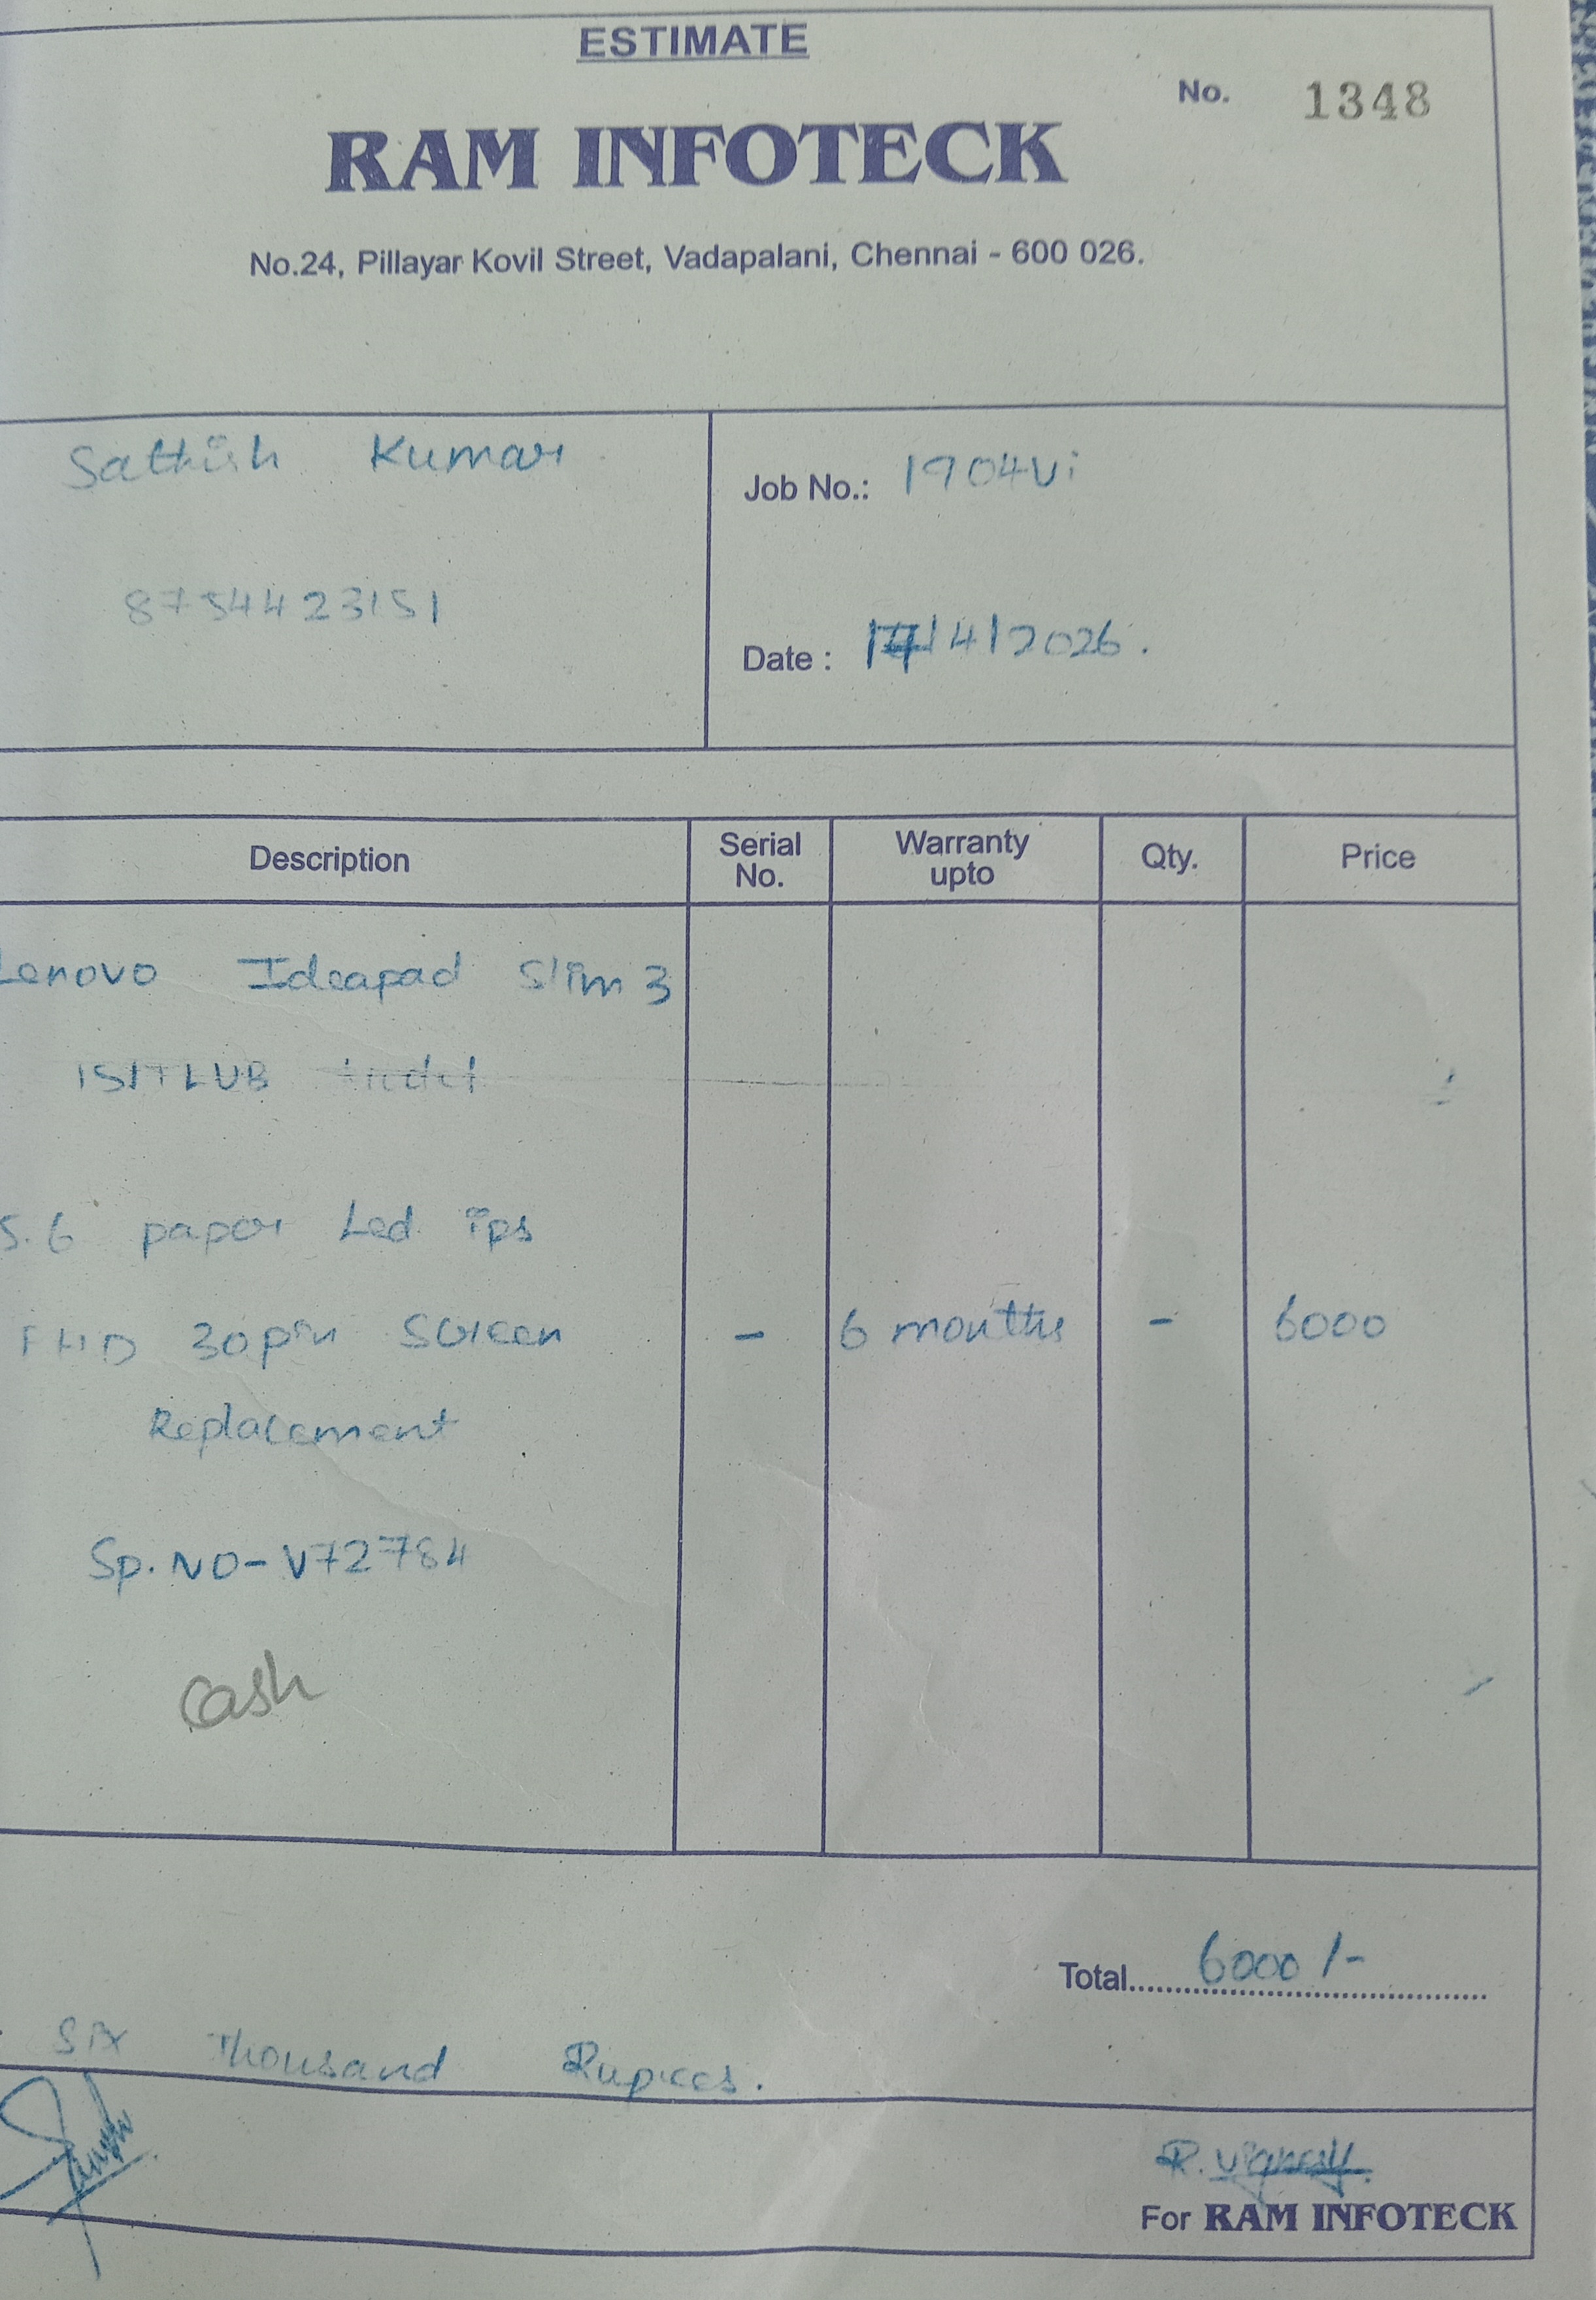 ESTIMATE
No. 1348
RAM INFOTECK
No.24, Pillayar Kovil Street, Vadapalani, Chennai - 600 026.
Sathish Kumar
8754423151
Job No.: 1904Vi
Date : 17/4/2026.
Description Serial No. Warranty upto Qty. Price
Lenovo Ideapad Slim 3
15ITLUB
5.6 paper Led ips
FHD 30pin Screen - 6 months - 6000
Replacement
Sp. NO - V72784
Cash
Total 6000/-
Six Thousand Rupees.
R. Vignesh.
For RAM INFOTECK